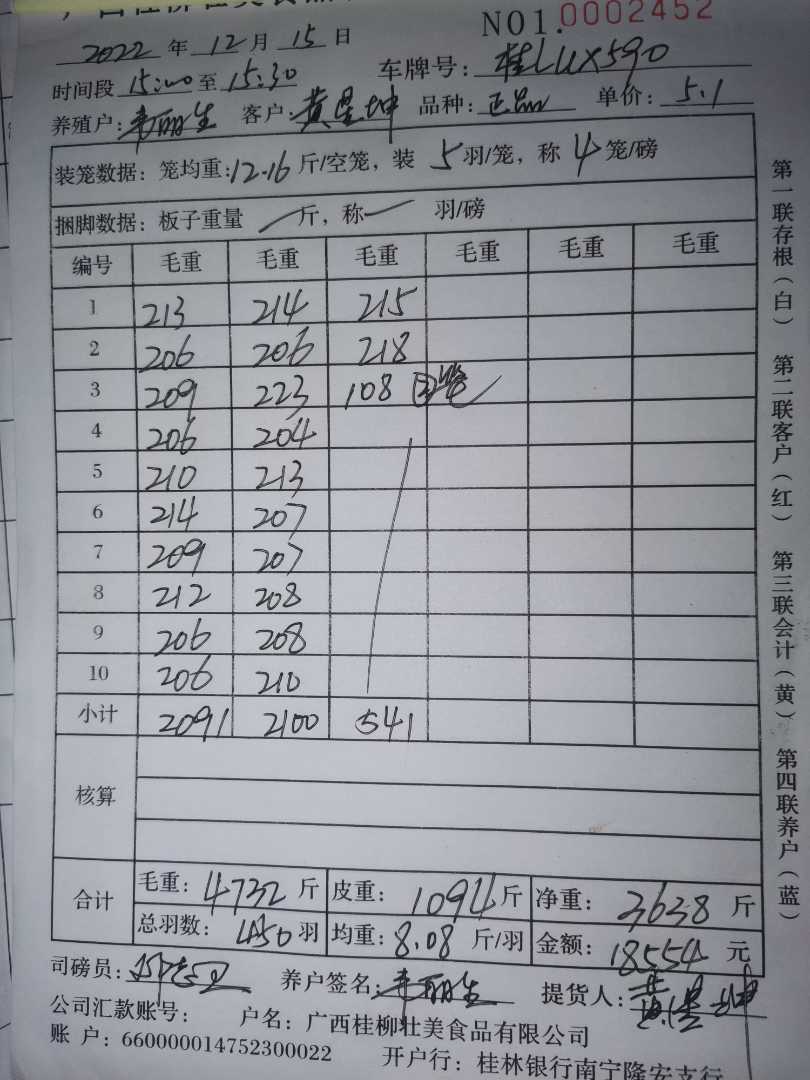 NO1.0002452
2022 年 12 月 15 日
时间段 15:00 至 15:30 车牌号: 桂LUX590
养殖户: 客户: 黄星坤 品种: 正品 单价: 5.1
装笼数据: 笼均重: 12.16 斤/空笼, 装 5 羽/笼, 称 4 笼/磅
捆脚数据: 板子重量 斤, 称 羽/磅
编号 毛重 毛重 毛重 毛重 毛重 毛重
1 213 214 215
2 206 206 218
3 209 223 108 ②笼
4 206 204
5 210 213
6 214 207
7 209 207
8 212 208
9 206 208
10 206 210
小计 2091 2100 541
核算
合计 毛重: 4732 斤 皮重: 1094 斤 净重: 3638 斤
总羽数: 450 羽 均重: 8.08 斤/羽 金额: 18554 元
司磅员: 养户签名: 提货人: 黄星坤
公司汇款账号: 户名: 广西桂柳壮美食品有限公司
账 户: 660000014752300022 开户行: 桂林银行南宁隆安支行
第一联存根(白) 第二联客户(红) 第三联会计(黄) 第四联养户(蓝)